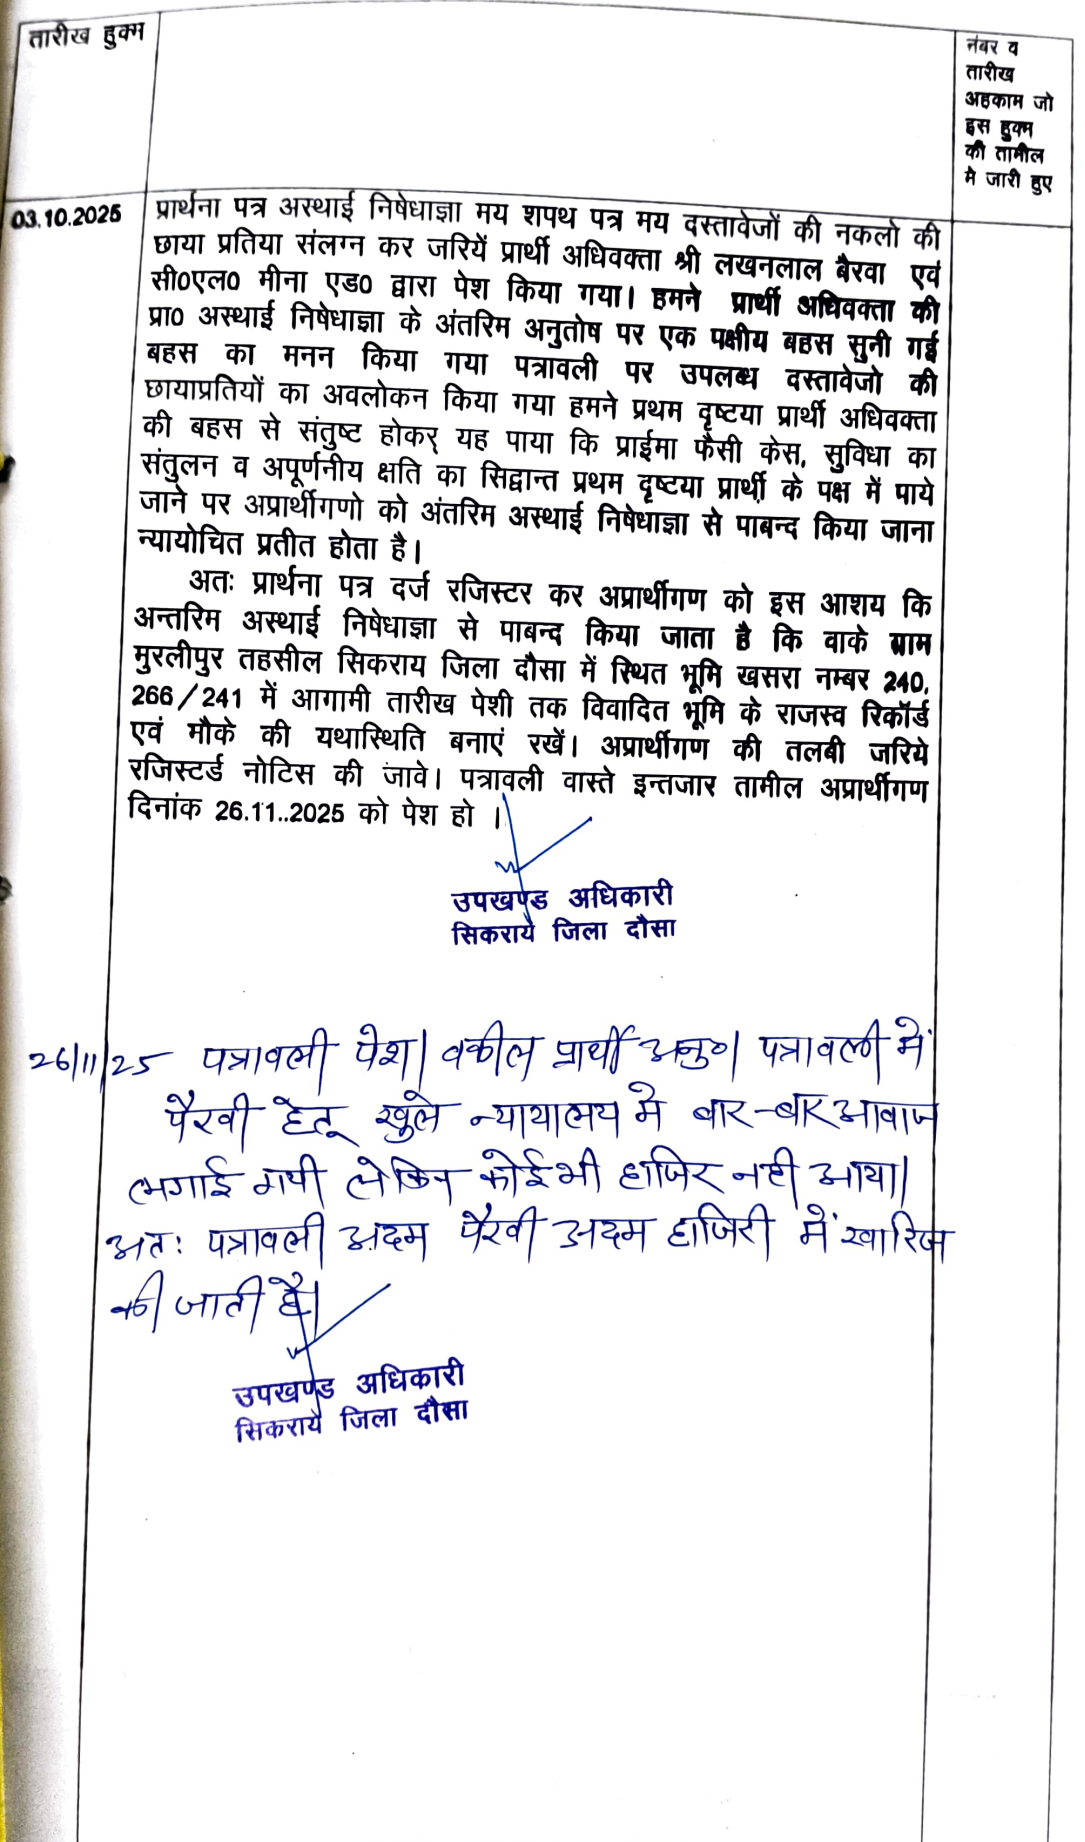 तारीख हुक्म
नंबर व
तारीख
अहकाम जो
इस हुक्म
की तामील
मे जारी हुए
03.10.2025
प्रार्थना पत्र अस्थाई निषेधाज्ञा मय शपथ पत्र मय दस्तावेजों की नकलो की
छाया प्रतिया संलग्न कर जरियें प्रार्थी अधिवक्ता श्री लखनलाल बैरवा एवं
सी०एल० मीना एड० द्वारा पेश किया गया। हमने प्रार्थी अधिवक्ता की
प्रा० अस्थाई निषेधाज्ञा के अंतरिम अनुतोष पर एक पक्षीय बहस सुनी गई
बहस का मनन किया गया पत्रावली पर उपलब्ध दस्तावेजो की
छायाप्रतियों का अवलोकन किया गया हमने प्रथम दृष्टया प्रार्थी अधिवक्ता
की बहस से संतुष्ट होकर् यह पाया कि प्राईमा फैसी केस, सुविधा का
संतुलन व अपूर्णनीय क्षति का सिद्वान्त प्रथम दृष्टया प्रार्थी के पक्ष में पाये
जाने पर अप्रार्थीगणो को अंतरिम अस्थाई निषेधाज्ञा से पाबन्द किया जाना
न्यायोचित प्रतीत होता है।
अतः प्रार्थना पत्र दर्ज रजिस्टर कर अप्रार्थीगण को इस आशय कि
अन्तरिम अस्थाई निषेधाज्ञा से पाबन्द किया जाता है कि वाके ग्राम
मुरलीपुर तहसील सिकराय जिला दौसा में स्थित भूमि खसरा नम्बर 240,
266/241 में आगामी तारीख पेशी तक विवादित भूमि के राजस्व रिकॉर्ड
एवं मौके की यथास्थिति बनाएं रखें। अप्रार्थीगण की तलबी जरिये
रजिस्टर्ड नोटिस की जावे। पत्रावली वास्ते इन्तजार तामील अप्रार्थीगण
दिनांक 26.11..2025 को पेश हो ।
उपखण्ड अधिकारी
सिकराय जिला दौसा
26/11/25 पत्रावली पेश। वकील प्रार्थी अनु०। पत्रावली में
पैरवी हेतू खुले न्यायालय मे बार-बार आवाज
लगाई गयी लेकिन कोई भी हाजिर नही आया।
अतः पत्रावली अदम पैरवी अदम हाजिरी में खारिज
की जाती है।
उपखण्ड अधिकारी
सिकराय जिला दौसा